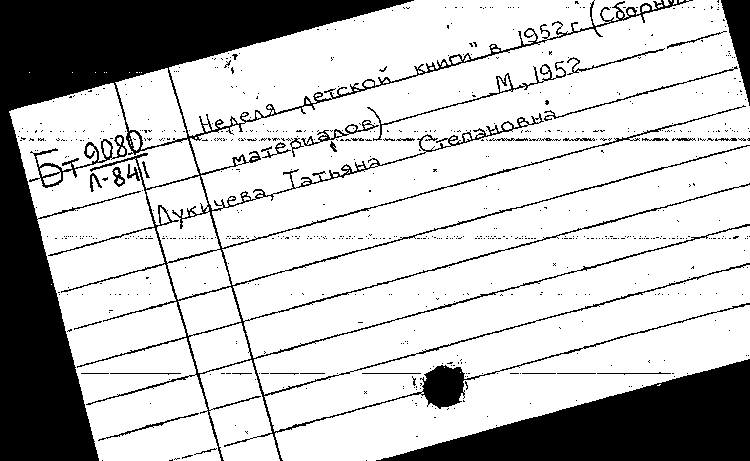 Неделя детской книги" в 1952 г. (Сборник
материалов) М., 1952
Бт 9080
Л-841
Лукичева, Татьяна Степановна